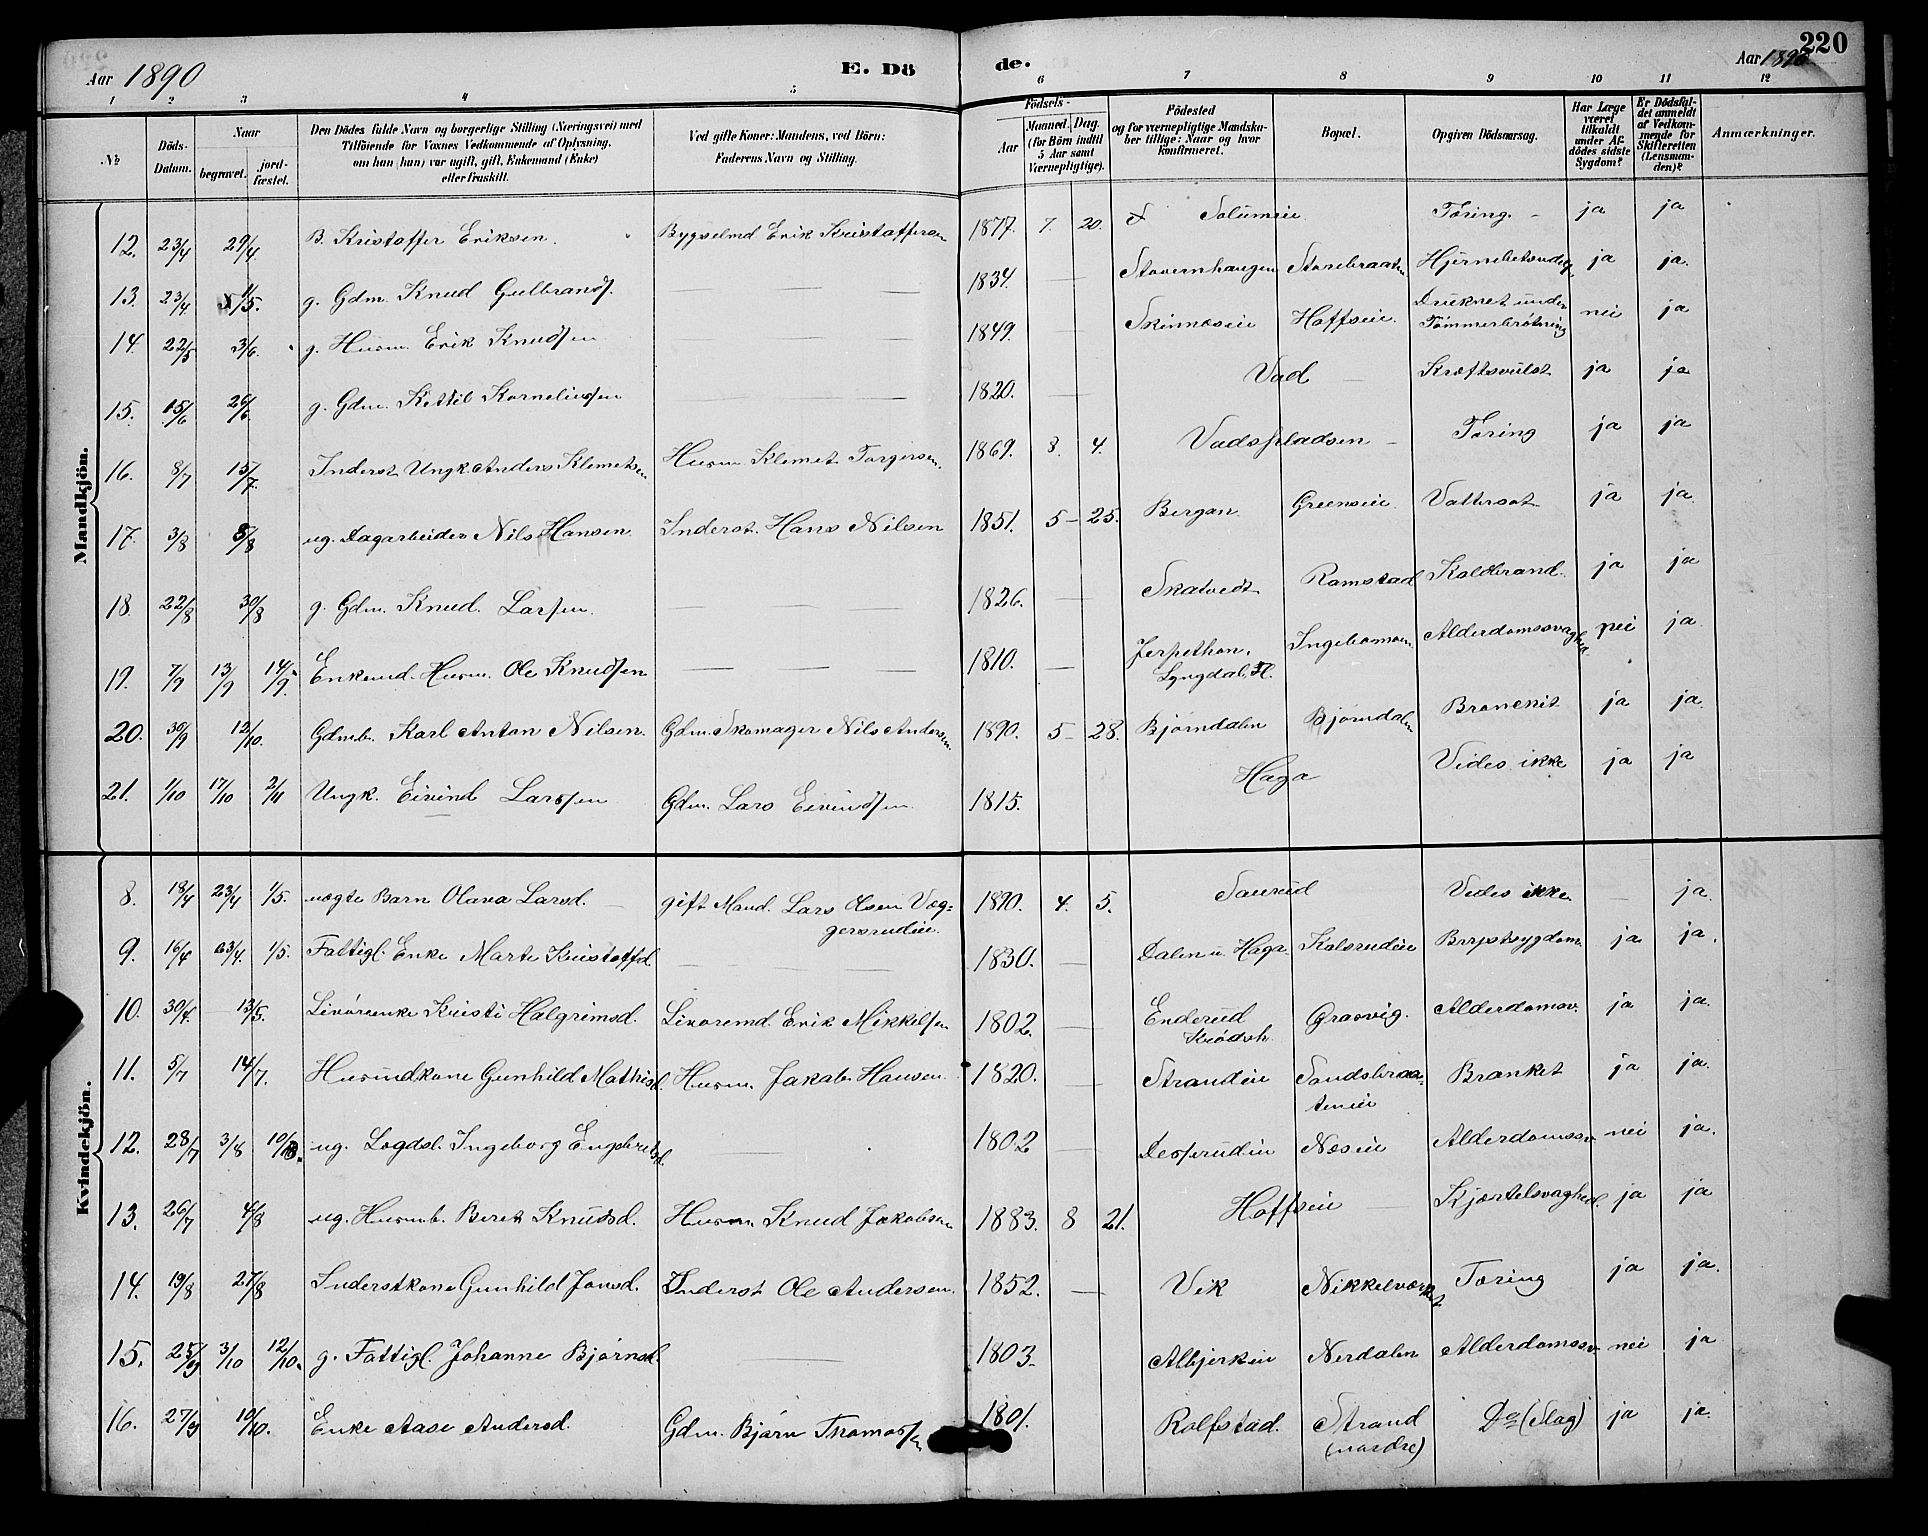 220
Aar 1890
E. Dö
de.
Aar 1890
1 2 3 4 5 6 7 8 9 10 11 12
№
Döds-Datum.
Naar
begravet.
jordfæstet.
Den Dödes fulde Navn og borgerlige Stilling (Næringsvei) med
Tilföiende for Voxnes Vedkommende af Oplysning,
om han (hun) var ugift, gift, Enkemand (Enke)
eller fraskilt.
Ved gifte Koner: Mandens, ved Börn:
Faderens Navn og Stilling.
Födsels-
Aar
Maaned. Dag.
(for Börn indtil
5 Aar samt
Værnepligtige).
Födested
og for værnepligtige Mandskaber tillige: Naar og hvor
konfirmeret.
Bopæl.
Opgiven Dödsaarsag.
Har Læge
været
tilkaldt
under Afdödes sidste
Sygdom?
Er Dödsfaldet anmeldt
af Vedkommende for
Skifteretten
(Lensmanden)?
Anmærkninger.
Mandkjön.
12. 23/4 29/4. B. Kristoffer Eriksen. Bygselmd Erik Kristoffersen 1877. 7. 20. Solumeie Tæring. ja ja
13. 23/4 1/5. g. Gdm. Knud Gulbrands. — 1834. — Stovernhaugen Storebraaten Hjernebetændelse ja ja.
14. 22/5 3/6. g. Husm. Erik Knudsen — 1849. — Skinneseie Hoffseie. Druknet under Tømmerbrøtning nei ja
15. 15/6 26/6. g. Gdm. Kittil Kornelius​sen — 1820. — Vad — Kræftsvulst ja ja
16. 8/7 15/7. Inderst Ungk. Anders Klemetsen Husm Klemet Torgersen. 1869. 8. 4. Vadspladsen — Tæring ja ja
17. 3/8 8/8 ug. Dagarbeider Nils Hansen. Inderst. Hans Nilsen 1851. 5 - 25. Bergan Greenseie. Vattersot ja ja.
18. 22/8 30/8 g. Gdm. Knud Larsen. — 1826. — Skatvedt Ramstad Koldbrand. ja ja
19. 7/9 13/9 14/9. Enkemd. Husm. Ole Knudsen — 1810. — Jerpethon, Lyngdal. Fl. Ingebomoen Alderdomssvaghed. nei ja
20. 30/9 12/10. Gdmb. Karl Anton Nilsen. Gdm. Skomager Nils Andersen. 1890. 5 - 28. Bjørndalen Bjørndalen Bronckit ja ja
21. 1/10 17/10 2/11 Ungk. Eivind Larssen Gdm. Lars Eivindsen. 1815. Haga Vides ikke ja ja
Kvindekjön.
8. 18/4 23/4 1/5. uægte Barn Olava Larsd. — gift Mand. Lars Olsen Væggersrudeie. 1890. 4. 5. Saurud Vides ikke — ja.
9. 16/4 23/4. 1/5. Fattigl. Enke Marte Kristoffd. — 1830. — Dalen u. Haga. Kolsrudeie Brystsygdom. ja ja.
10. 30/4. — 13/5. Livøreenke Kristi Halgrimsd. Livøremd. Erik Mikkelsen 1802. — Enderud Krødsh. Græsvig. Alderdomsv. ja ja.
11. 5/7 14/7. Husmdkone Gunhild Mathisd. Husm. Jakob Hansen. 1820. — Strandeie Sandsbraateneie Brønket ja ja.
12. 28/7 3/8 10/8. ug. Logdsl. Ingeborg Engebretsd. — 1802 — Desserudeie Næseie Alderdomssv. nei ja.
13. 26/7 4/8 ug. Husmb. Beret Knudsd. Husm Knud Jakobsen 1883. 8 21. Hoffseie — Kjærtelsvaghed. ja ja
14. 19/8 27/8 Inderstkone Gunhild Jonsd. Inderst Ole Andersen. 1852. — Vik Nikkelværket Tæring ja ja.
15. 25/9 3/10 12/10. g. Fattigl. Johanne Bjørnsd. — 1803. Albjerkeie Nerdalen Alderdomssv. nei ja
16. 27/9 10/10. Enke Aase Andersd. Gdm. Bjørn Thomassen 1801. Rolfstad. Strand (nordre) Do (Slag) ja ja.